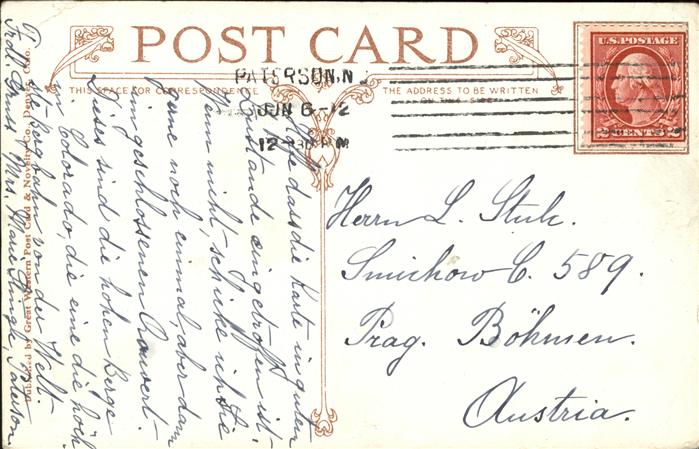 POST CARD
THIS SPACE FOR CORRESPONDENCE
THE ADDRESS TO BE WRITTEN
ON THIS SIDE
PATERSON, N
JUN 6-12
12 30 P M
U.S. POSTAGE
2 CENTS 2
Hoffe dass die Karte in guten
Zustande eingetroffen ist.
Wenn nicht, schicke ich Sie
gerne noch einmal, aber dann
im geschlossenen Couvert.
Dieses sind die hohen Berge
in Colorado die eine die höch
ste Bergbahn von der Welt
Frdl. Gruss Mrs. Marie
Herrn L. Stuk.
Smichow C. 589.
Prag. Böhmen.
Austria.
Published by Great Western Post Card & Novelty Co., Denver, Colo.